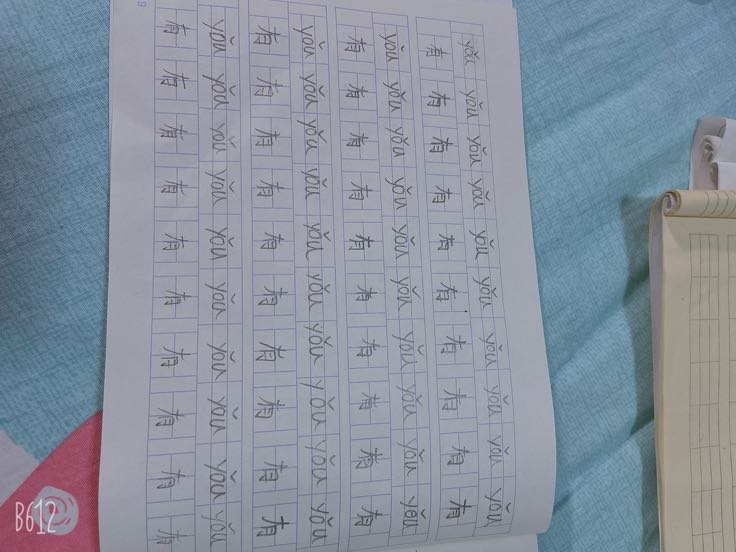 yǒu yǒu yǒu yǒu yǒu yǒu yǒu yǒu yǒu yǒu
有 有 有 有 有 有 有 有 有 有
yǒu yǒu yǒu yǒu yǒu yǒu yǒu yǒu yǒu yǒu
有 有 有 有 有 有 有 有 有 有
yǒu yǒu yǒu yǒu yǒu yǒu yǒu yǒu yǒu yǒu
有 有 有 有 有 有 有 有 有 有
yǒu yǒu yǒu yǒu yǒu yǒu yǒu yǒu yǒu yǒu
有 有 有 有 有 有 有 有 有 有
B612